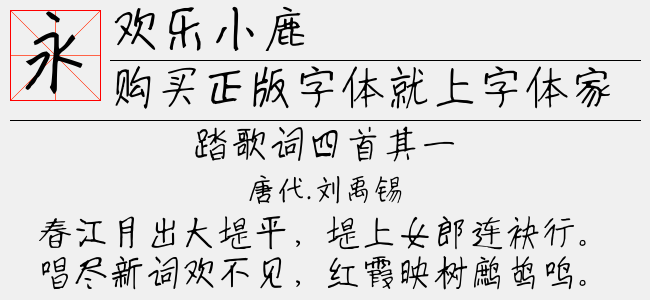 永
欢乐小鹿
购买正版字体就上字体家
踏歌词四首其一
唐代.刘禹锡
春江月出大堤平，堤上女郎连袂行。
唱尽新词欢不见，红霞映树鹧鸪鸣。